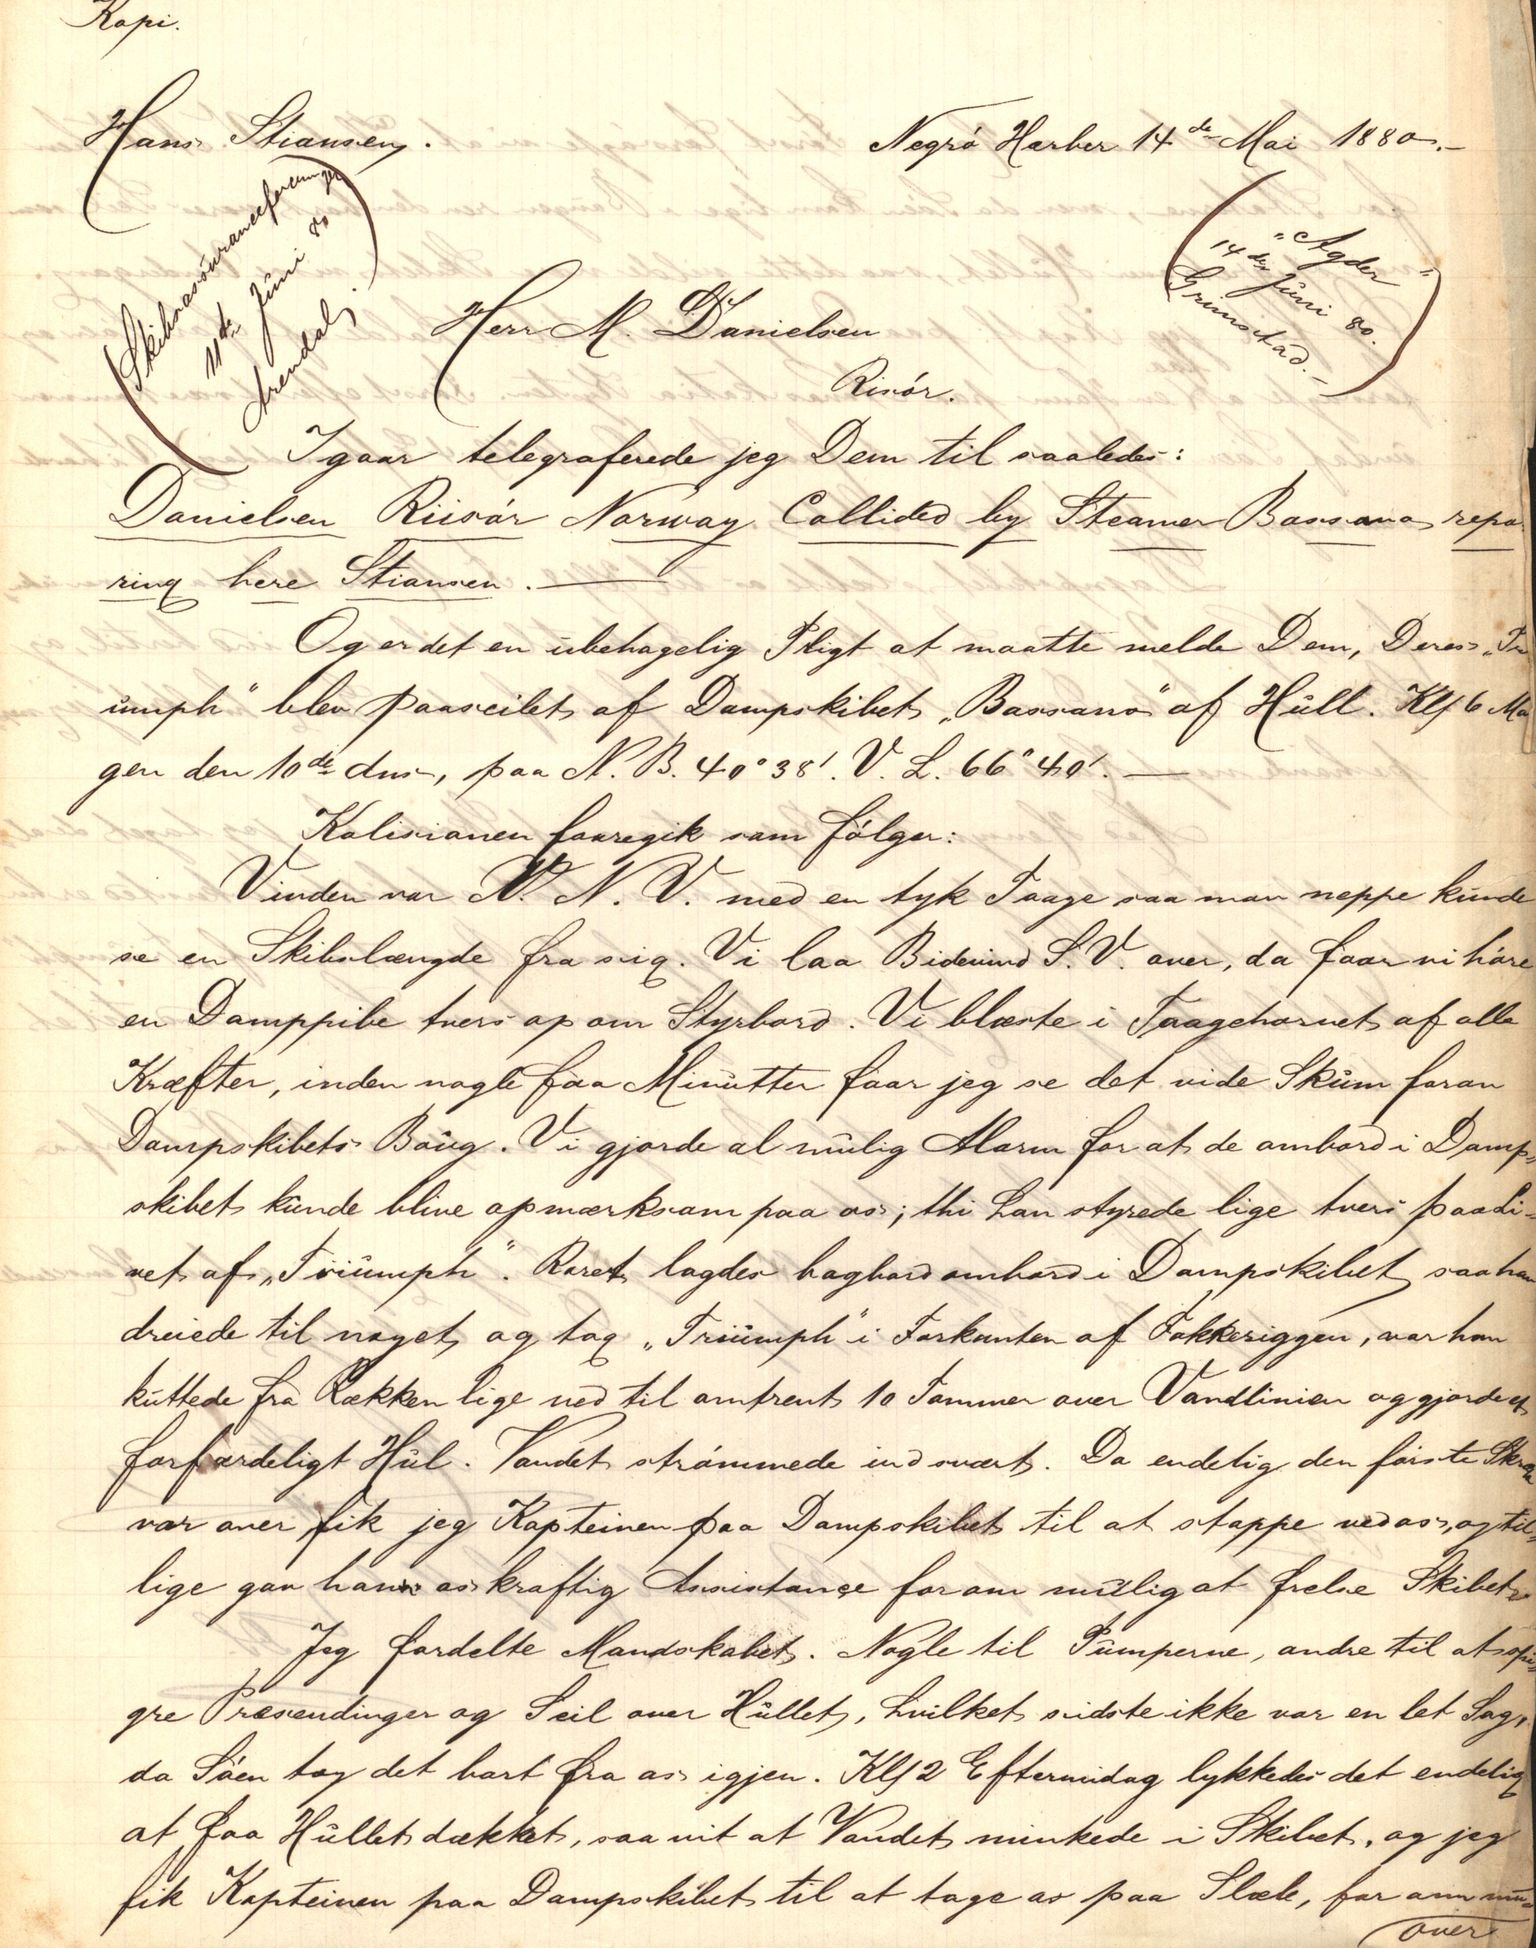 Kopi.
Hans Stiansen.
Negrø Harber 14de Mai 1880.-
(Skibsassuranceforeninger
11te Juni 80
Arendal)
("Agder"
14de Juni 80.
Grimstad.-)
Herr M. Danielsen
Risør.
Igaar telegraferede jeg Dem til saaledes:
Danielsen Riisør Norway Collided by Steamer Bassano repa
ring here Stiansen.
Og er det en ubehagelig Pligt at maatte melde Dem, Deres „Tri
umph" blev paaseilet af Dampskibet „Bassano" af Hull. Kl 6 Mor
gen den 10de dns, paa N. B. 40° 38'. V. L. 66° 40'. —
Kolisionen foregik som følger:
Vinden var V. N. V. med en tyk Taage saa man neppe kunde
se en Skibslængde fra sig. Vi laa Bidevind S. V. over, da faar vi høre
en Damppibe tvers op om Styrbord. Vi blæste i Taagehornet af alle
Kræfter, inden nogle faa Minutter faar jeg se det vide Skum foran
Dampskibets Boug. Vi gjorde al mulig Alarm for at de ombord i Damp-
skibet kunde blive opmærksom paa os; thi han styrede lige tvers paa Li-
vet af „Triumph". Roret lagdes bagbord ombord i Dampskibet saa han
dreiede til noget, og tog „Triumph" i Forkanten af Fokkeriggen, var han
kuttede fra Rækken lige ned til omtrent 10 Tommer over Vandlinien og gjorde et
forfærdeligt Hul. Vandet strømmede ind svært. Da endelig den første Skræk
var over fik jeg Kapteinen paa Dampskibet til at stoppe ved os, og til-
lige gav han os kraftig Assistance for om mulig at frelse Skibet
Jeg fordelte Mandskabet. Nogle til Pumperne, andre til at spi
gre Presendinger og Seil over Hullet, hvilket sidste ikke var en let Sag,
da Søen tog det bort fra os igjen. Kl 2 Eftermidag lykkedes det endelig
at faa Hullet dækket, saa vit at Vandet minkede i Skibet, og jeg
fik Kapteinen paa Dampskibet til at tage os paa Slæb, for om mu-
over